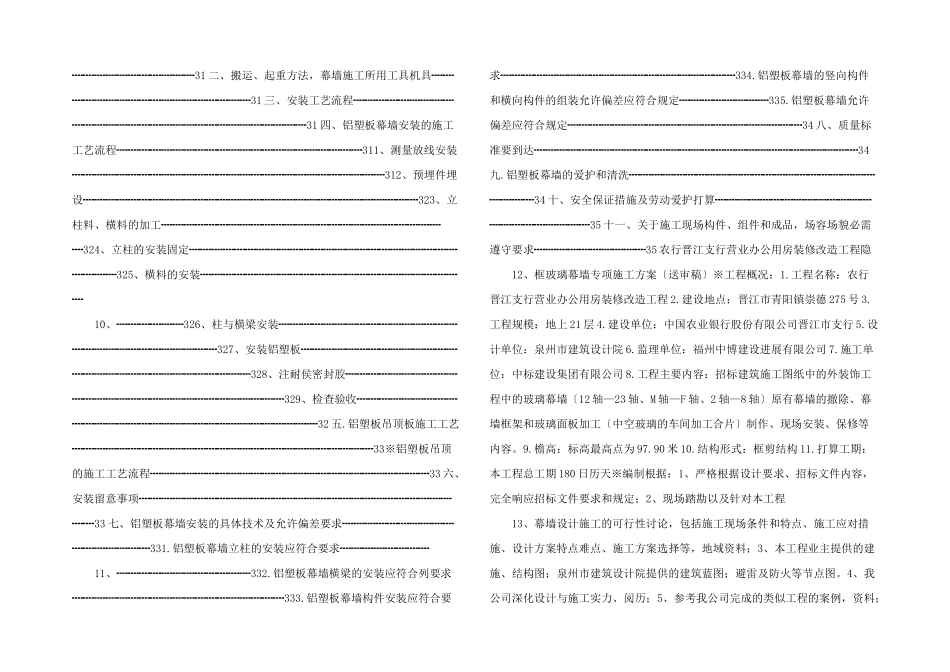 ┅┅┅┅┅┅┅┅┅┅┅┅┅┅┅31 二、搬运、起重方法，幕墙施工所用工具机具┅┅┅
┅┅┅┅┅┅┅┅┅┅┅┅┅┅┅┅┅┅┅┅┅31 三、安装工艺流程┅┅┅┅┅┅┅┅┅┅┅┅
┅┅┅┅┅┅┅┅┅┅┅┅┅┅┅┅┅┅┅┅┅┅┅┅┅┅┅31 四、铝塑板幕墙安装的施工
工艺流程┅┅┅┅┅┅┅┅┅┅┅┅┅┅┅┅┅┅┅┅┅┅┅┅┅┅┅┅311、测量放线安装
┅┅┅┅┅┅┅┅┅┅┅┅┅┅┅┅┅┅┅┅┅┅┅┅┅┅┅┅┅┅┅┅┅┅┅┅312、预埋件埋
设┅┅┅┅┅┅┅┅┅┅┅┅┅┅┅┅┅┅┅┅┅┅┅┅┅┅┅┅┅┅┅┅┅┅┅┅┅┅323、立
柱料、横料的加工┅┅┅┅┅┅┅┅┅┅┅┅┅┅┅┅┅┅┅┅┅┅┅┅┅┅┅┅┅┅┅┅
┅324、立柱的安装固定┅┅┅┅┅┅┅┅┅┅┅┅┅┅┅┅┅┅┅┅┅┅┅┅┅┅┅┅┅┅
┅┅┅┅┅325、横料的安装┅┅┅┅┅┅┅┅┅┅┅┅┅┅┅┅┅┅┅┅┅┅┅┅┅┅┅┅┅
┅
10、┅┅┅┅┅┅┅┅326、柱与横梁安装┅┅┅┅┅┅┅┅┅┅┅┅┅┅┅┅┅┅┅┅
┅┅┅┅┅┅┅┅┅┅┅┅┅┅┅┅┅327、安装铝塑板┅┅┅┅┅┅┅┅┅┅┅┅┅┅┅┅┅┅
┅┅┅┅┅┅┅┅┅┅┅┅┅┅┅┅┅┅┅┅┅328、注耐侯密封胶┅┅┅┅┅┅┅┅┅┅┅┅┅
┅┅┅┅┅┅┅┅┅┅┅┅┅┅┅┅┅┅┅┅┅┅┅┅┅329、检查验收┅┅┅┅┅┅┅┅┅┅┅
┅┅┅┅┅┅┅┅┅┅┅┅┅┅┅┅┅┅┅┅┅┅┅┅┅┅┅┅32 五.铝塑板吊顶板施工工艺
┅┅┅┅┅┅┅┅┅┅┅┅┅┅┅┅┅┅┅┅┅┅┅┅┅┅┅┅┅┅┅┅┅┅┅33※铝塑板吊顶
的施工工艺流程┅┅┅┅┅┅┅┅┅┅┅┅┅┅┅┅┅┅┅┅┅┅┅┅┅┅┅┅┅┅33 六、
安装留意事项┅┅┅┅┅┅┅┅┅┅┅┅┅┅┅┅┅┅┅┅┅┅┅┅┅┅┅┅┅┅┅┅┅┅┅
┅┅33 七、铝塑板幕墙安装的具体技术及允许偏差要求┅┅┅┅┅┅┅┅┅┅┅┅
┅┅┅┅┅┅┅┅┅331.铝塑板幕墙立柱的安装应符合要求┅┅┅┅┅┅┅┅┅┅
11、┅┅┅┅┅┅┅┅┅┅┅┅┅┅┅332.铝塑板幕墙横梁的安装应符合列要求
┅┅┅┅┅┅┅┅┅┅┅┅┅┅┅┅┅┅┅┅┅┅┅┅┅333.铝塑板幕墙构件安装应符合要
求┅┅┅┅┅┅┅┅┅┅┅┅┅┅┅┅┅┅┅┅┅┅┅┅┅┅┅334.铝塑板幕墙的竖向构件
和横向构件的组装允许偏差应符合规定┅┅┅┅┅┅┅┅┅┅335.铝塑板幕墙允许
偏差应符合规定┅┅┅┅┅┅┅┅┅┅┅┅┅┅┅┅┅┅┅┅┅┅┅┅┅┅34 八、质量标
准要到达┅┅┅┅┅┅┅┅┅┅┅┅┅┅┅┅┅┅┅┅┅┅┅┅┅┅┅┅┅┅┅┅┅┅┅┅34
九.铝塑板幕墙的爱护和清洗┅┅┅┅┅┅┅┅┅┅┅┅┅┅┅┅┅┅┅┅┅┅┅┅┅┅┅
┅┅┅┅┅34 十、安全保证措施及劳动爱护打算┅┅┅┅┅┅┅┅┅┅┅┅┅┅┅┅┅
┅┅┅┅┅┅┅┅┅┅┅35 十一、关于施工现场构件、组件和成品，场容场貌必需
遵守要求┅┅┅┅┅┅┅┅┅┅┅┅┅35 农行晋江支行营业办公用房装修改造工程隐
12、框玻璃幕墙专项施工方案〔送审稿〕※工程概况：1.工程名称：农行
晋江支行营业办公用房装修改造工程 2.建设地点：晋江市青阳镇崇德 275 号 3.
工程规模：地上 21 层 4.建设单位：中国农业银行股份有限公司晋江市支行 5.设
计单位：泉州市建筑设计院 6.监理单位：福州中博建设进展有限公司 7.施工单
位：中标建设集团有限公司 8.工程主要内容：招标建筑施工图纸中的外装饰工
程中的玻璃幕墙〔12 轴—23 轴、M 轴—F 轴、2 轴—8 轴〕原有幕墙的撤除、幕
墙框架和玻璃面板加工〔中空玻璃的车间加工合片〕制作、现场安装、保修等
内容。9.檐高：标高最高点为 97.90 米 10.结构形式：框剪结构 11.打算工期：
本工程总工期 180 日历天※编制根据：1、严格根据设计要求、招标文件内容，
完全响应招标文件要求和规定；2、现场踏勘以及针对本工程
13、幕墙设计施工的可行性讨论，包括施工现场条件和特点、施工应对措
施、设计方案特点难点、施工方案选择等，地域资料；3、本工程业主提供的建
施、结构图；泉州市建筑设计院提供的建筑蓝图；避雷及防火等节点图。4、我
公司深化设计与施工实力、阅历；5、参考我公司完成的类似工程的案例，资料；